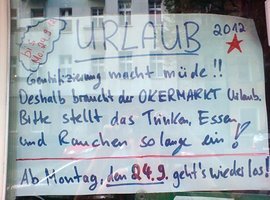 URLAUB 2012
Gentrifizierung macht müde!!
Deshalb braucht der OKERMARKT Urlaub.
Bitte stellt das Trinken, Essen
und Rauchen solange ein!
Ab Montag, den 24.9. geht's wieder los!